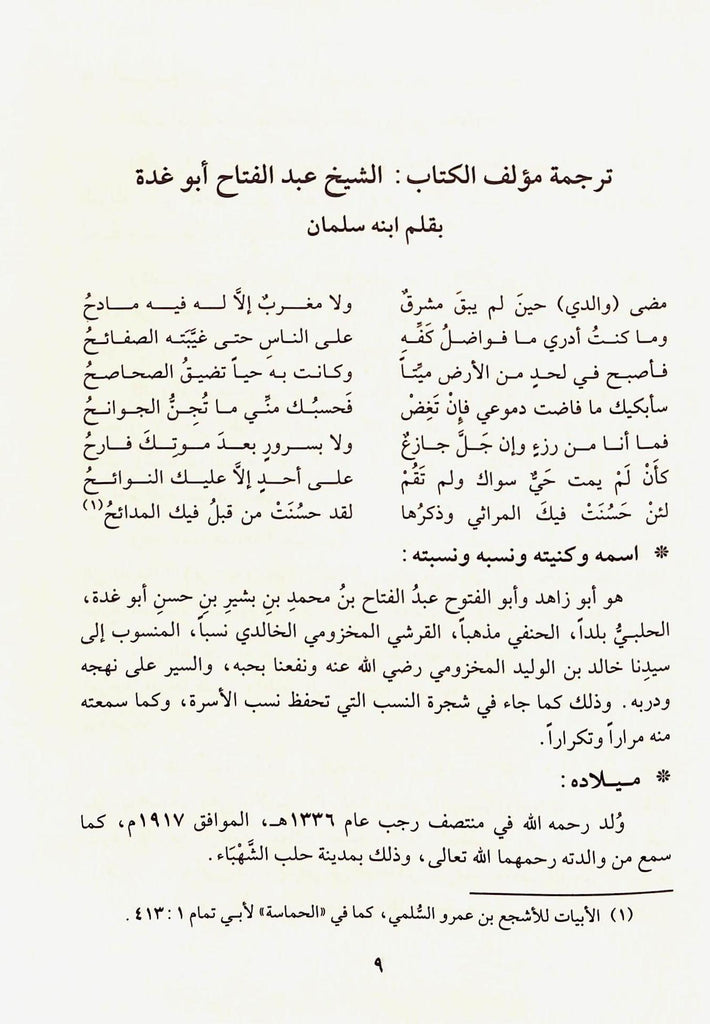 ترجمة مؤلف الكتاب: الشيخ عبد الفتاح أبو غدة
بقلم ابنه سلمان
مضى (والدي) حينَ لم يبقَ مشرقٌ ولا مغـــربٌ إلاَّ لـــه فيـــه مـــادحُ
وما كنتُ أدري ما فواضلُ كَفِّهِ على الناسِ حتى غيَّبَته الصفائحُ
فأصبح في لحدٍ من الأرض ميِّتاً وكانت به حياً تضيقُ الصحاصحُ
سأبكيك ما فاضت دموعي فإنْ تَغِضْ فَحسبُك منِّي ما تُجِنُّ الجوانحُ
فما أنا من رزءٍ وإن جَلَّ جازعٌ ولا بسرورٍ بعدَ موتِكَ فارحُ
كأنْ لَمْ يمت حَيٌّ سواك ولم تَقُمْ على أحدٍ إلاَّ عليك النوائحُ
لئنْ حَسُنَتْ فيكَ المراثي وذكرُها لقد حسُنَتْ من قبلُ فيك المدائحُ(١)
* اسمه وكنيته ونسبه ونسبته:
هو أبو زاهد وأبو الفتوح عبدُ الفتاح بنُ محمدِ بنِ بشيرِ بنِ حسنٍ أبو غدة،
الحلبيُّ بلداً، الحنفي مذهباً، القرشي المخزومي الخالدي نسباً، المنسوب إلى
سيدِنا خالد بن الوليد المخزومي رضي الله عنه ونفعنا بحبه، والسير على نهجه
ودربه. وذلك كما جاء في شجرة النسب التي تحفظ نسب الأسرة، وكما سمعته
منه مراراً وتكراراً.
* ميلاده:
وُلد رحمه الله في منتصف رجب عام ١٣٣٦هـ، الموافق ١٩١٧م، كما
سمع من والدته رحمهما الله تعالى، وذلك بمدينة حلب الشَّهْبَاء.
(١) الأبيات للأشجع بن عمرو السُّلمي، كما في «الحماسة» لأبي تمام ١: ٤١٣.
٩